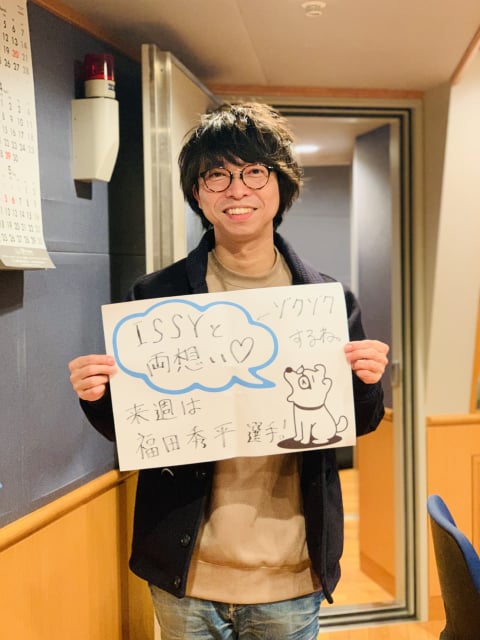 ISSYと
両想い♡
←ゾクゾク
するね。
来週は
福田秀平選手!